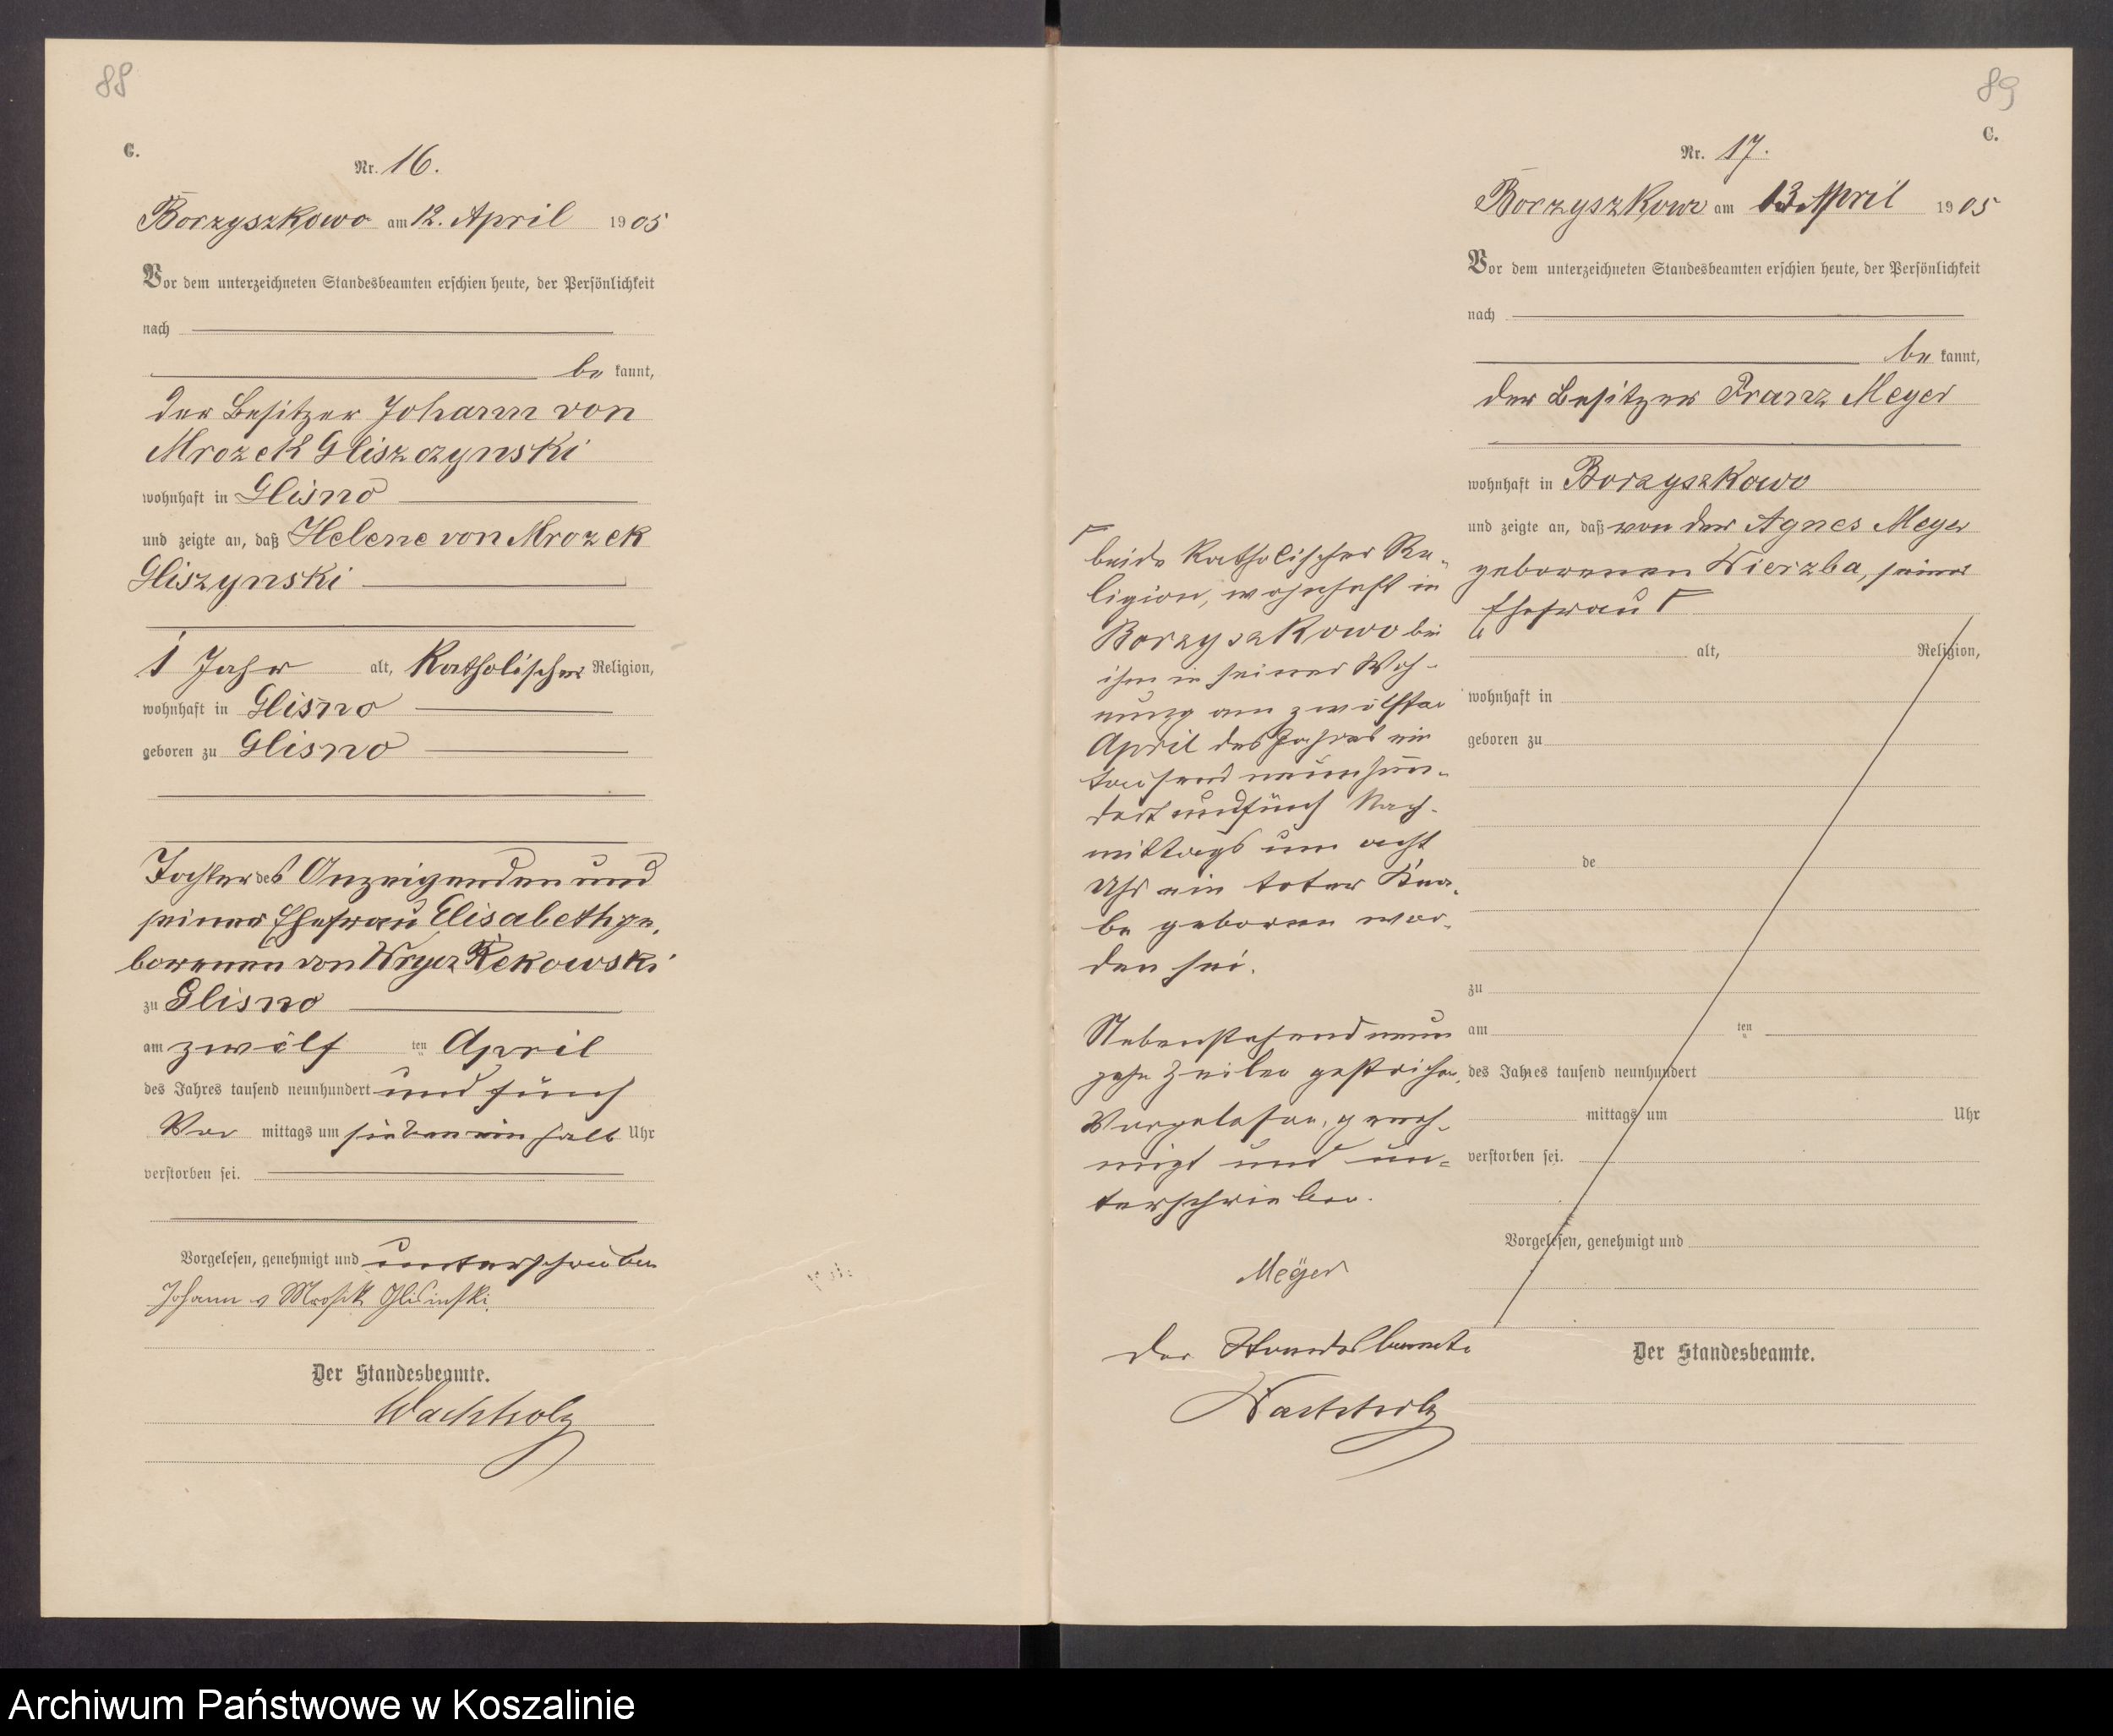 88
C.
Nr. 16.
Borzyszkowo am 12. April 1905
Vor dem unterzeichneten Standesbeamten erschien heute, der Persönlichkeit
nach
be kannt,
der Besitzer Johann von
Mrozek Gliszczynski
wohnhaft in Glisno
und zeigte an, daß Helene von Mrozek
Gliszynski
1 Jahr alt, Katholischer Religion,
wohnhaft in Glisno
geboren zu Glisno
Tochter des Anzeigenden und
seiner Ehefrau Elisabeth ge,
borenen von Wrycz Rekowski
zu Glisno
am zwölf ten April
des Jahres tausend neunhundert und fünf
Vor mittags um sieben ein halb Uhr
verstorben sei.
Vorgelesen, genehmigt und unterschrieben
Johann v Mrosek Glisinski.
Der Standesbeamte.
Wachholz
89
C.
Nr. 17.
Borzyszkowo am 13 April 1905
Vor dem unterzeichneten Standesbeamten erschien heute, der Persönlichkeit
nach
be kannt,
der Besitzer Franz Meyer
wohnhaft in Borzyszkowo
und zeigte an, daß von der Agnes Meyer
geborenen Wierzba, seiner
Ehefrau Γ
alt, Religion,
wohnhaft in
geboren zu
de
zu
am ten
des Jahres tausend neunhundert
mittags um Uhr
verstorben sei.
Vorgelesen, genehmigt und
Der Standesbeamte.
Γ
beide Katholischer Re-
ligion, wohnhaft in
Borzyszkowo bei
ihm in seiner Woh-
nung am zwölften
April des Jahres ein
tausend neunhun-
dert und fünf Nach-
mittags um acht
Uhr ein toter Kna-
be geboren wor-
den sei.
Nebenstehend neun
zehn Zeilen gestrichen.
Vorgelesen, geneh-
migt und un=
terschrieben.
Meyer
Der Standesbeamte
Wachholz
Archiwum Państwowe w Koszalinie